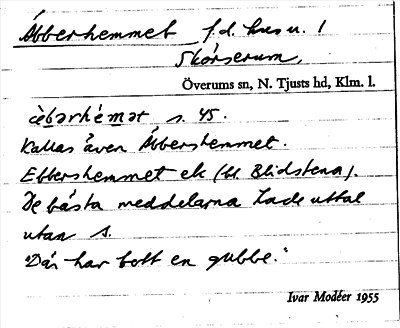 Äbberhemmet f.d. hus u. 1
Skörserum,
Överums sn, N. Tjusts hd, Klm. l.
èbərhémət s. 45.
Kallas även Äbbershemmet.
Ebbershemmet ek (bl Blidstena).
De bästa meddelarna hade uttal
utan s.
"Där har bott en gubbe."
Ivar Modéer 1955